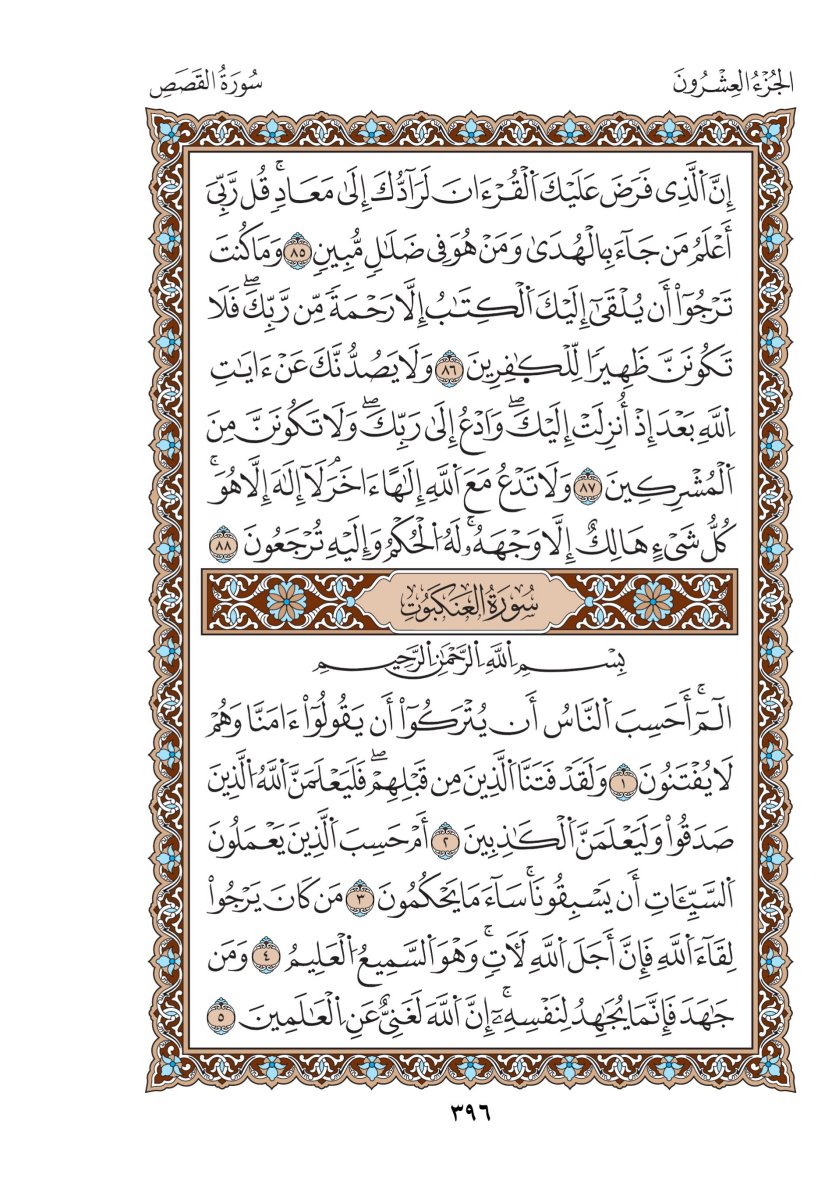 الجُزْءُ العِشْرُونَ
سُورَةُ القَصَصِ
إِنَّ اَلَّذِى فَرَضَ عَلَيْكَ اَلْقُرْءَانَ لَرَآدُّكَ إِلَىٰ مَعَادٍۚ قُل رَّبِّىَ
أَعْلَمُ مَن جَآءَ بِالْهُدَىٰ وَمَنْ هُوَ فِى ضَلَٰلٍ مُّبِينٍ ٨٥ وَمَا كُنتَ
تَرْجُوٓاْ أَن يُلْقَىٰٓ إِلَيْكَ اَلْكِتَٰبُ إِلَّا رَحْمَةً مِّن رَّبِّكَۖ فَلَا
تَكُونَنَّ ظَهِيرًا لِّلْكٰفِرِينَ ٨٦ وَلَا يَصُدُّنَّكَ عَنْ ءَايَٰتِ
اِللَّهِ بَعْدَ إِذْ أُنزِلَتْ إِلَيْكَۖ وَادْعُ إِلَىٰ رَبِّكَۖ وَلَا تَكُونَنَّ مِنَ
اَلْمُشْرِكِينَ ٨٧ وَلَا تَدْعُ مَعَ اَللَّهِ إِلَٰهًا ءَاخَرَۘ لَآ إِلَٰهَ إِلَّا هُوَۚ
كُلُّ شَىْءٍ هَالِكٌ إِلَّا وَجْهَهُۥۚ لَهُ اُلْحُكْمُ وَإِلَيْهِ تُرْجَعُونَ ٨٨
سُورَةُ العَنكَبُوتِ
بِسْمِ اِللَّهِ اِلرَّحْمَٰنِ اِلرَّحِيمِ
الٓمٓۚ أَحَسِبَ اَلنَّاسُ أَن يُتْرَكُوٓاْ أَن يَقُولُوٓاْ ءَامَنَّا وَهُمْ
لَا يُفْتَنُونَ ١ وَلَقَدْ فَتَنَّا اَلَّذِينَ مِن قَبْلِهِمْۖ فَلَيَعْلَمَنَّ اَللَّهُ اُلَّذِينَ
صَدَقُواْ وَلَيَعْلَمَنَّ اَلْكَٰذِبِينَ ٢ أَمْ حَسِبَ اَلَّذِينَ يَعْمَلُونَ
اَلسَّيِّـَٔاتِ أَن يَسْبِقُونَاۚ سَآءَ مَا يَحْكُمُونَ ٣ مَن كَانَ يَرْجُواْ
لِقَآءَ اَللَّهِ فَإِنَّ أَجَلَ اَللَّهِ لَأٓتٍۚ وَهْوَ اَلسَّمِيعُ اُلْعَلِيمُ ٤ وَمَن
جَٰهَدَ فَإِنَّمَا يُجَٰهِدُ لِنَفْسِهِۦٓۚ إِنَّ اَللَّهَ لَغَنِىٌّ عَنِ اِلْعَٰلَمِينَ ٥
٣٩٦